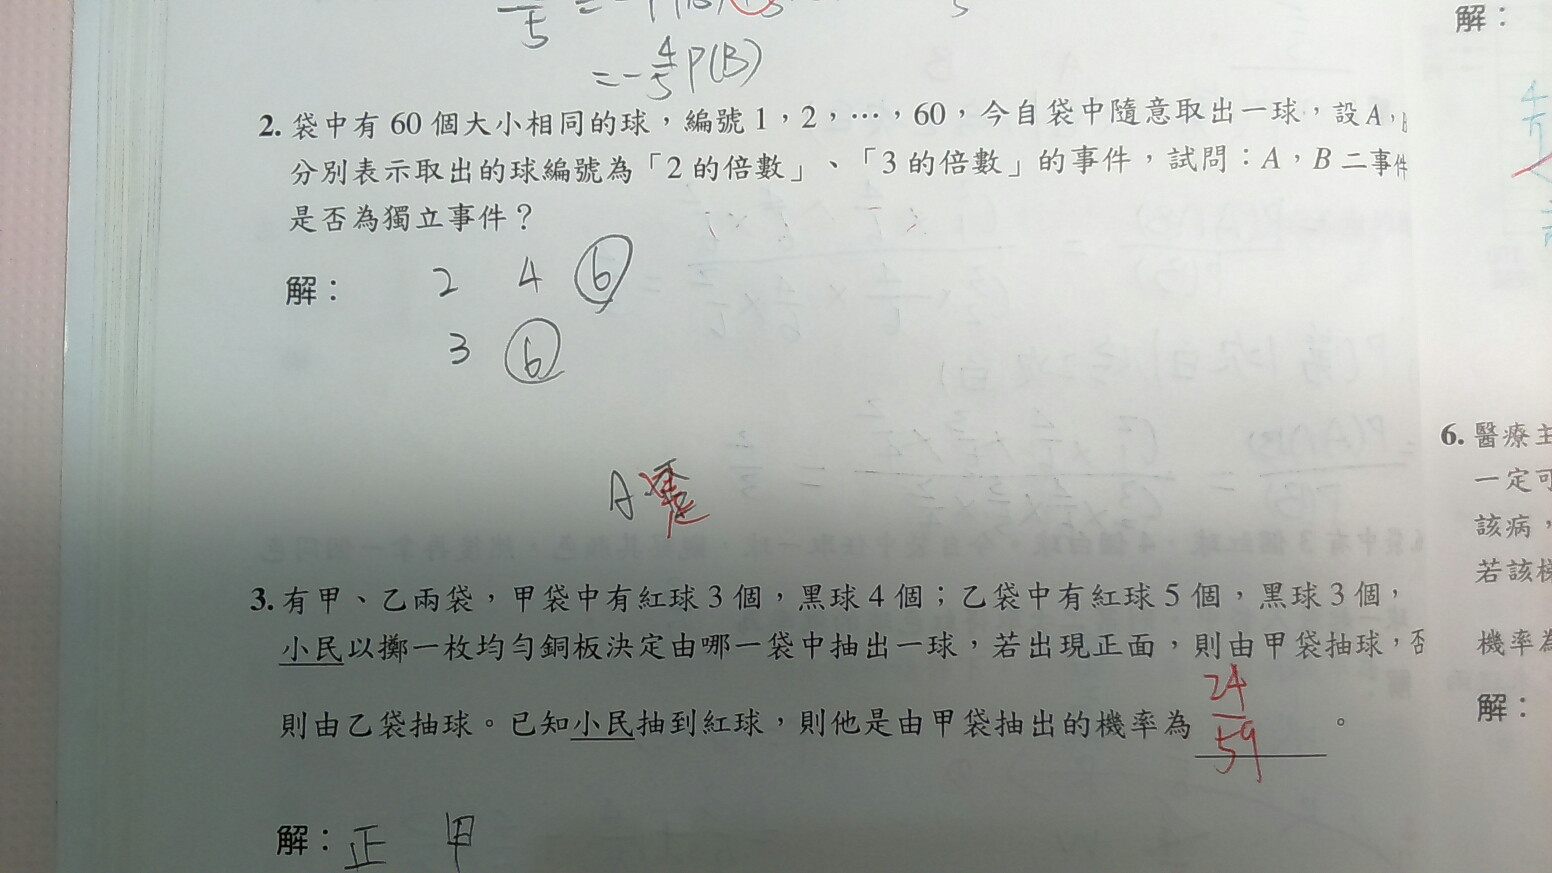 解：
5
=-4/5 P(B)
2. 袋中有 60 個大小相同的球，編號 1，2，…，60，今自袋中隨意取出一球，設 A，
分別表示取出的球編號為「2 的倍數」、「3 的倍數」的事件，試問：A，B 二事件
是否為獨立事件？
解： 2 4 6
3 6
A 是
3. 有甲、乙兩袋，甲袋中有紅球 3 個，黑球 4 個；乙袋中有紅球 5 個，黑球 3 個，
小民以擲一枚均勻銅板決定由哪一袋中抽出一球，若出現正面，則由甲袋抽球，否
則由乙袋抽球。已知小民抽到紅球，則他是由甲袋抽出的機率為 24/59 。
解：正 甲
6. 醫療主
一定可
該病，
若該梯
機率為
解：